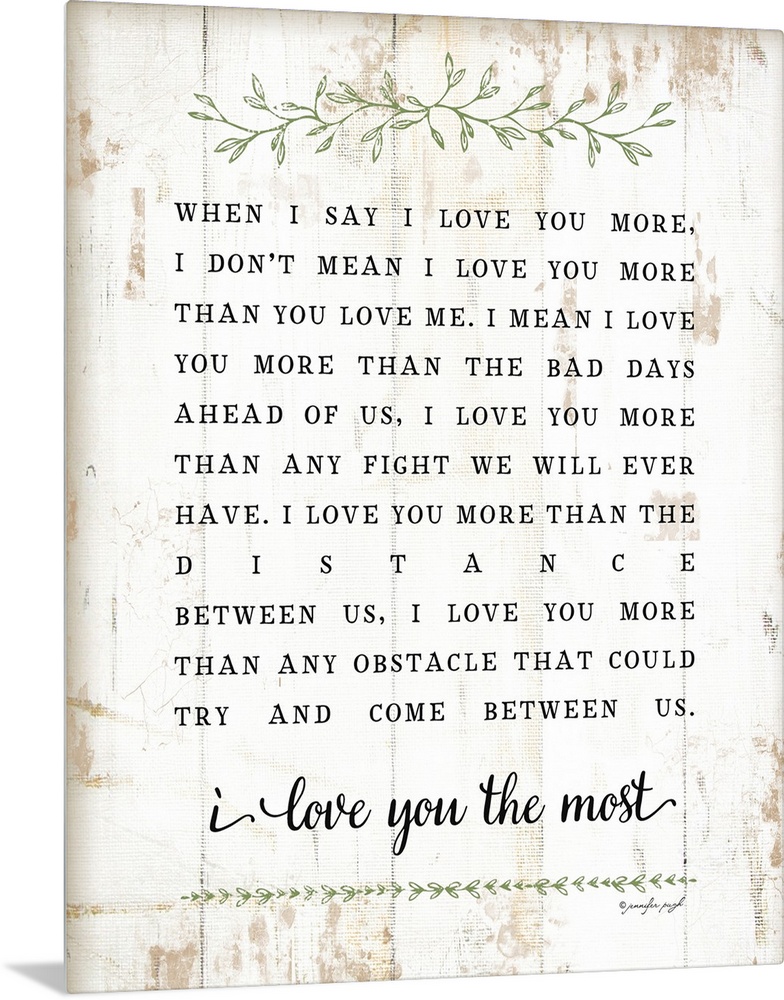 WHEN I SAY I LOVE YOU MORE,
I DON'T MEAN I LOVE YOU MORE
THAN YOU LOVE ME. I MEAN I LOVE
YOU MORE THAN THE BAD DAYS
AHEAD OF US, I LOVE YOU MORE
THAN ANY FIGHT WE WILL EVER
HAVE. I LOVE YOU MORE THAN THE
DISTANCE
BETWEEN US, I LOVE YOU MORE
THAN ANY OBSTACLE THAT COULD
TRY AND COME BETWEEN US.
i love you the most
©jennifer pugh